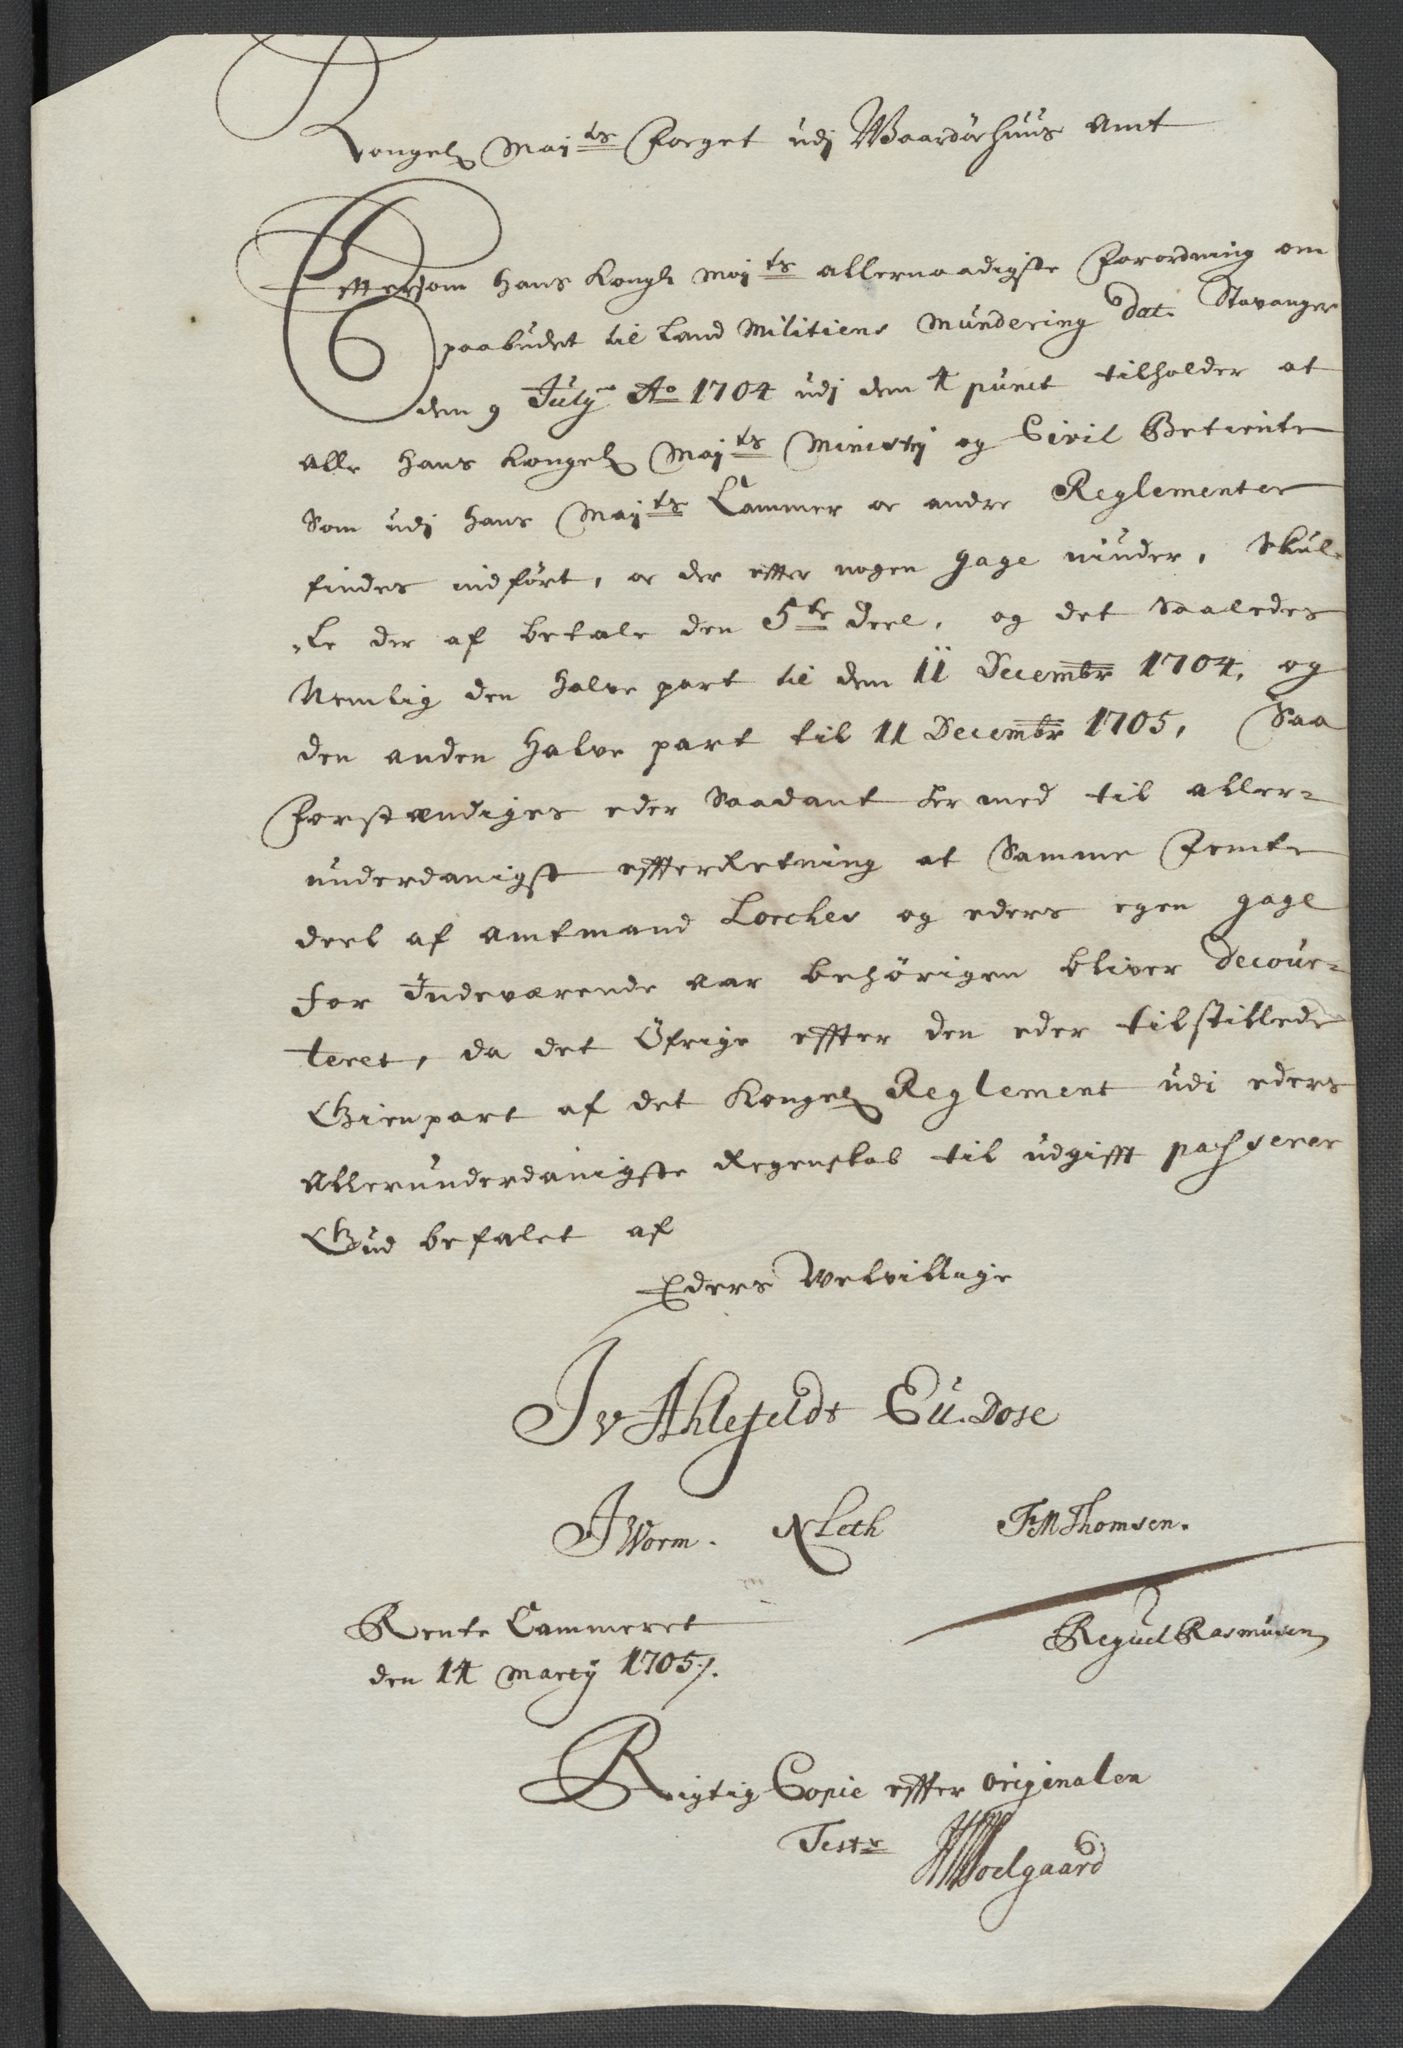 Kongel Maÿts Foeget udj Waardøehuus Amt
Effterson Hans Kongl Maÿts allernaadigste Forordning om
paabudet til Land Militiens Mundering dat. Stavanger
den 9 Julÿ Ao 1704 udj den 4 punct tilholder at
alle Hans Kongel Maÿts Ministrj og Civil Betiente
Som udj Hans Maÿts Cammer oc andre Reglementer
findes indført, oc der effter nogen gage niuder, Skul-
-le der af betale den 5te deel, og det Saaledes
Nemlig den halve part til den 11 Decembr 1704, og
den anden halve part til 11 Decembr 1705, Saa
Forstændiges eder Saadant her med til aller-
underdanigst effterRetning at Samme Femte
deel af Amtmand Lorches og eders egen gage
for Indeværende aar behörigen bliver decour-
teret, da det Öfrige effter den eder tilstillede
Gienpart af det Kongel Reglement udi eders
Allerunderdanigste Regenskab til udgifft passerer
Gud befalet af
Eders Velvillige
J v Ahlefeldt C U. Dose
J Worm. N Leth F M Thomsen.
Rente Cammeret
Reguel Rasmusen
den 14 Martÿ 1705/.
Rigtig Copie effter originalen
Test